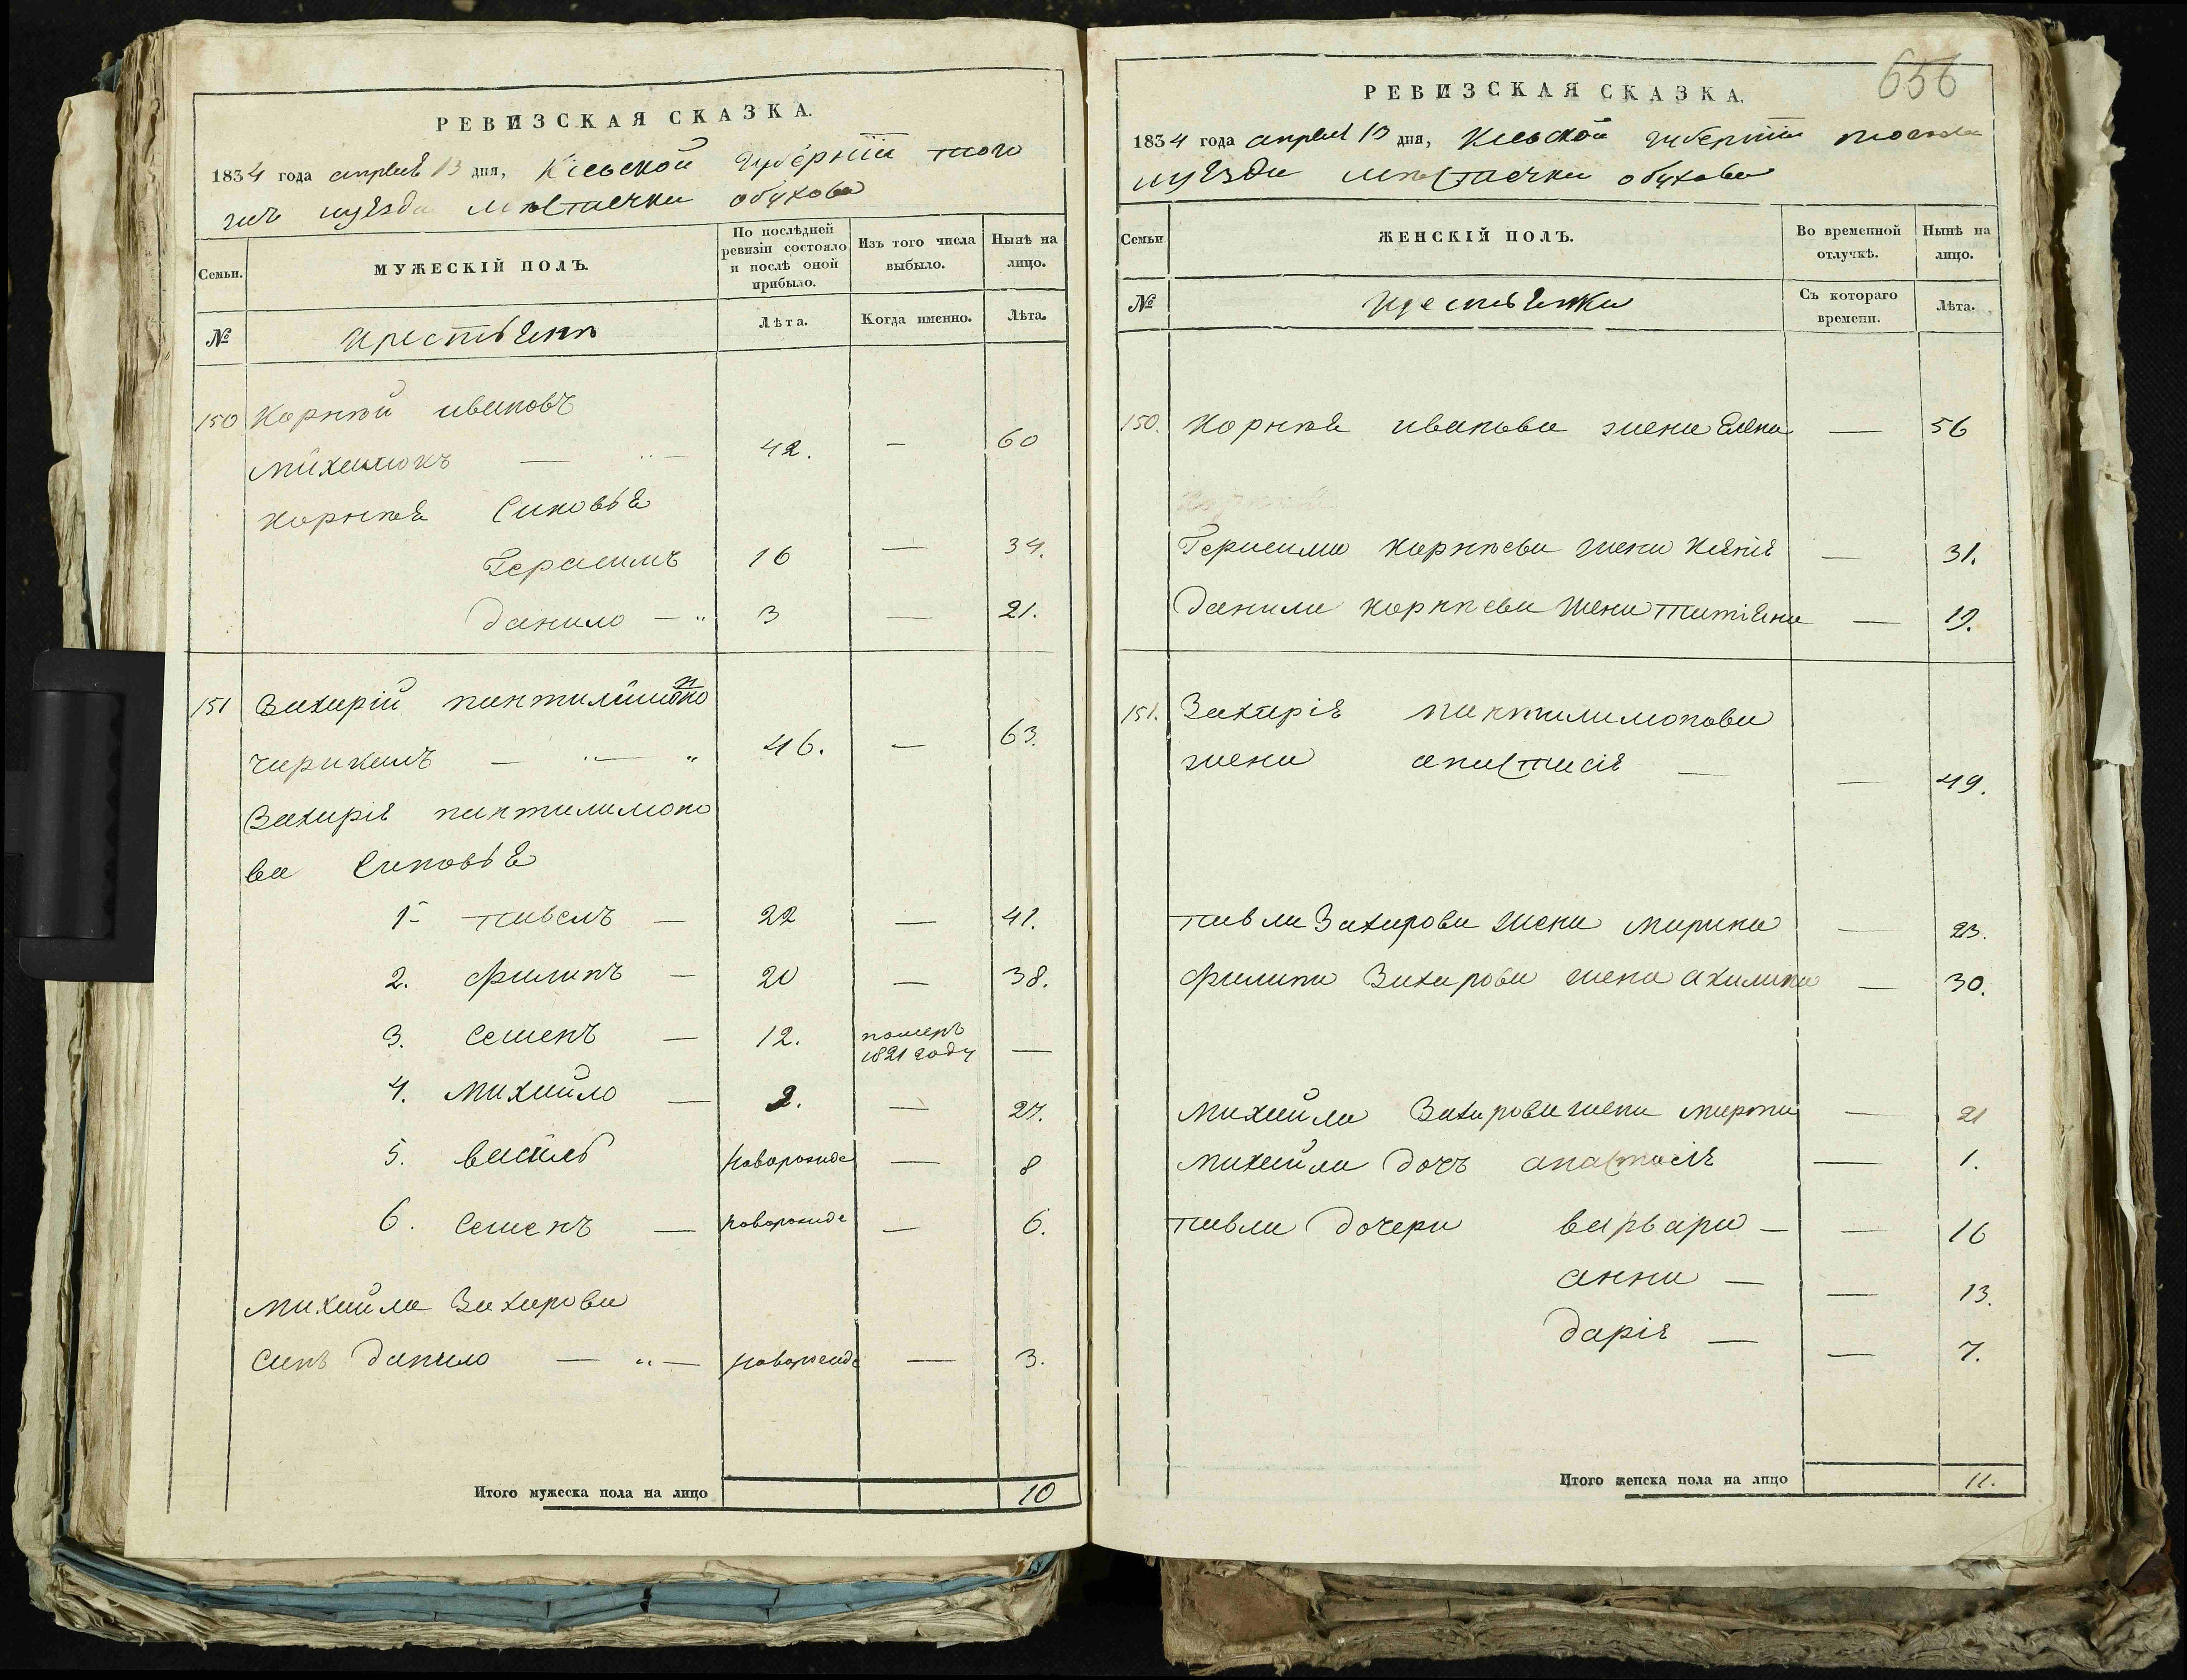 РЕВИЗСКАЯ СКАЗКА.
1834 года апреля 13 дня, Кіевской губернііи того
жъ уѣзда мѣстечка обухова
Семьи.
МУЖЕСКІЙ ПОЛЪ.
По послѣдней ревизіи состояло и послѣ оной прибыло.
Изъ того числа выбыло.
Нынѣ на лицо.
№
крестьянъ
Лѣта.
Когда именно.
Лѣта.
150 Корнѣй ивановъ
михалюкъ — 42. — 60
корнѣя Синовья
Герасимъ 16 — 34.
данило — 3 — 21.
151 Захарій пантилимоно
46. — 63.
Захарія пантилимоно
ва Синовья
1 павелъ — 22 — 41.
2. филипъ — 20 — 38.
3. Семенъ — 12. померъ 1821 году —
4. михайло — 2. — 27.
5. василь новорожде — 8
6. Семенъ — новорожде — 6.
михайла Захарова
Синъ данило — новорожде — 3.
Итого мужеска пола на лицо 10
656
РЕВИЗСКАЯ СКАЗКА.
1834 года апреля 13 дня, Кіевской губерніи тогожъ
уѣзда мѣстечка обухова
Семьи
ЖЕНСКІЙ ПОЛЪ.
Во временной отлучкѣ.
Нынѣ на лицо.
№
Съ котораго времени.
Лѣта.
150. Корнѣя иванова жена Елена — 56
Герасима корнѣева жена — 31.
данила корнѣева жена татіяна — 19.
151. Захарія пантилимонова
жена анастасія — — 49.
павла Захарова жена марина — 23.
филипа Захарова жена акилина — 30.
михайла Захарова жена марта — 21
михайла дочъ анастасія — 1.
павла дочери варвара — — 16
анна — — 13.
дарія — — 7.
Итого женска пола на лицо 11.